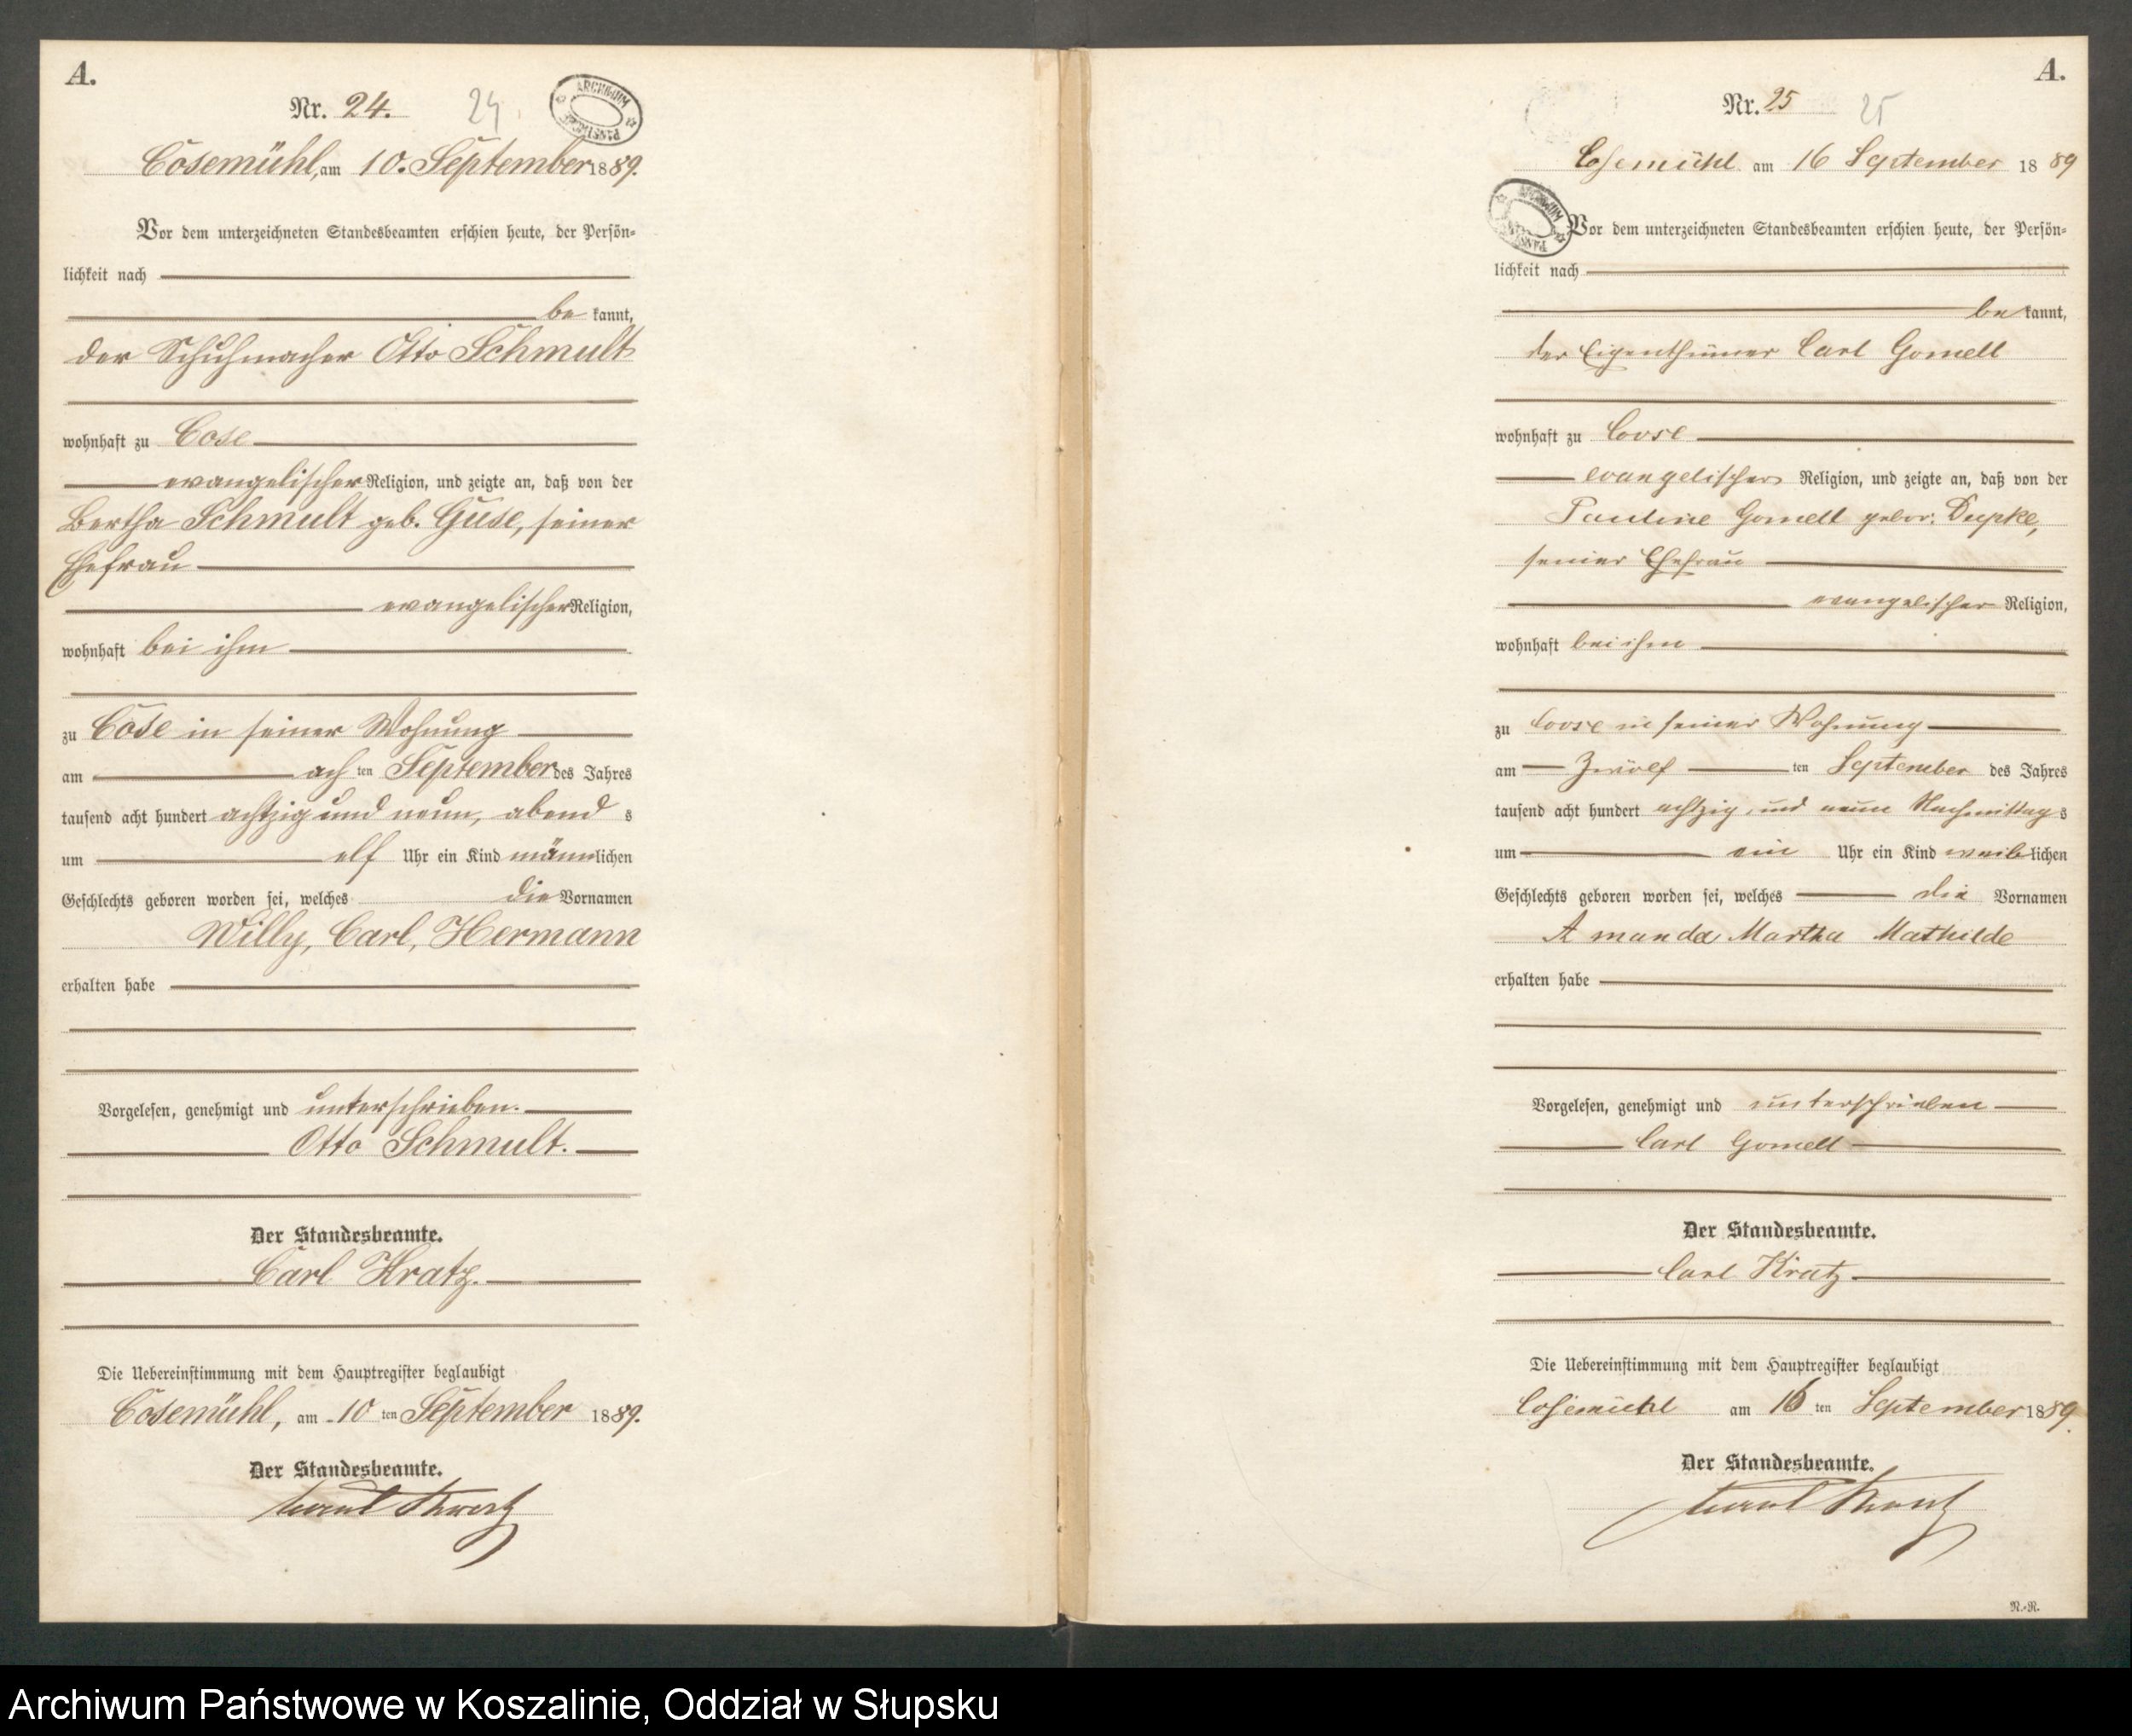 A.
Nr. 24. 24
ARCHIWUM PAŃSTWOWE
Cösemühl, am 10. September 1889.
Vor dem unterzeichneten Standesbeamten erschien heute, der Persön-
lichkeit nach
be kannt,
der Schuhmacher Otto Schmult
wohnhaft zu Cose
evangelischer Religion, und zeigte an, daß von der
Bertha Schmult geb. Guse, seiner
Ehefrau
evangelischer Religion,
wohnhaft bei ihm
zu Cose in seiner Wohnung
am ach ten September des Jahres
tausend acht hundert achtzig und neun, abend s
um elf Uhr ein Kind männlichen
Geschlechts geboren worden sei, welches die Vornamen
Willy, Carl, Hermann
erhalten habe
Vorgelesen, genehmigt und unterschrieben.
Otto Schmult.
Der Standesbeamte.
Carl Kratz.
Die Uebereinstimmung mit dem Hauptregister beglaubigt
Cösemühl, am 10 ten September 1889.
Der Standesbeamte.
A.
Nr. 25 25
Cosemühl am 16 September 18 89
ARCHIWUM
Vor dem unterzeichneten Standesbeamten erschien heute, der Persön-
lichkeit nach
be kannt,
der Eigenthümer Carl Gomell
wohnhaft zu Coose
evangelischer Religion, und zeigte an, daß von der
Pauline Gomell gebor. Dupke,
seiner Ehefrau
evangelischer Religion,
wohnhaft bei ihm
zu Coose in seiner Wohnung
am Zwölf ten September des Jahres
tausend acht hundert achtzig und neun Nachmittag s
um ein Uhr ein Kind weiblichen
Geschlechts geboren worden sei, welches die Vornamen
Amanda Martha Mathilde
erhalten habe
Vorgelesen, genehmigt und unterschrieben
Carl Gomell
Der Standesbeamte.
Carl Kratz
Die Uebereinstimmung mit dem Hauptregister beglaubigt
Cosemühl am 16 ten September 1889.
Der Standesbeamte.
R.-R.
Archiwum Państwowe w Koszalinie, Oddział w Słupsku